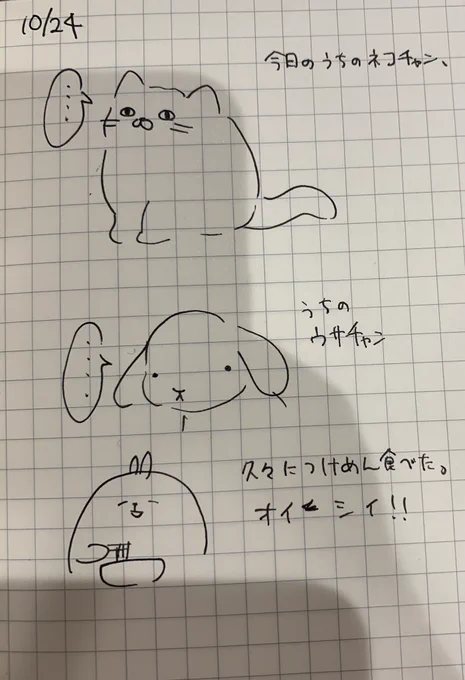 10/24
今日のうちのネコチャン、
……
うちの
ウサチャン
……
久々につけめん食べた。
オイーシイ!!